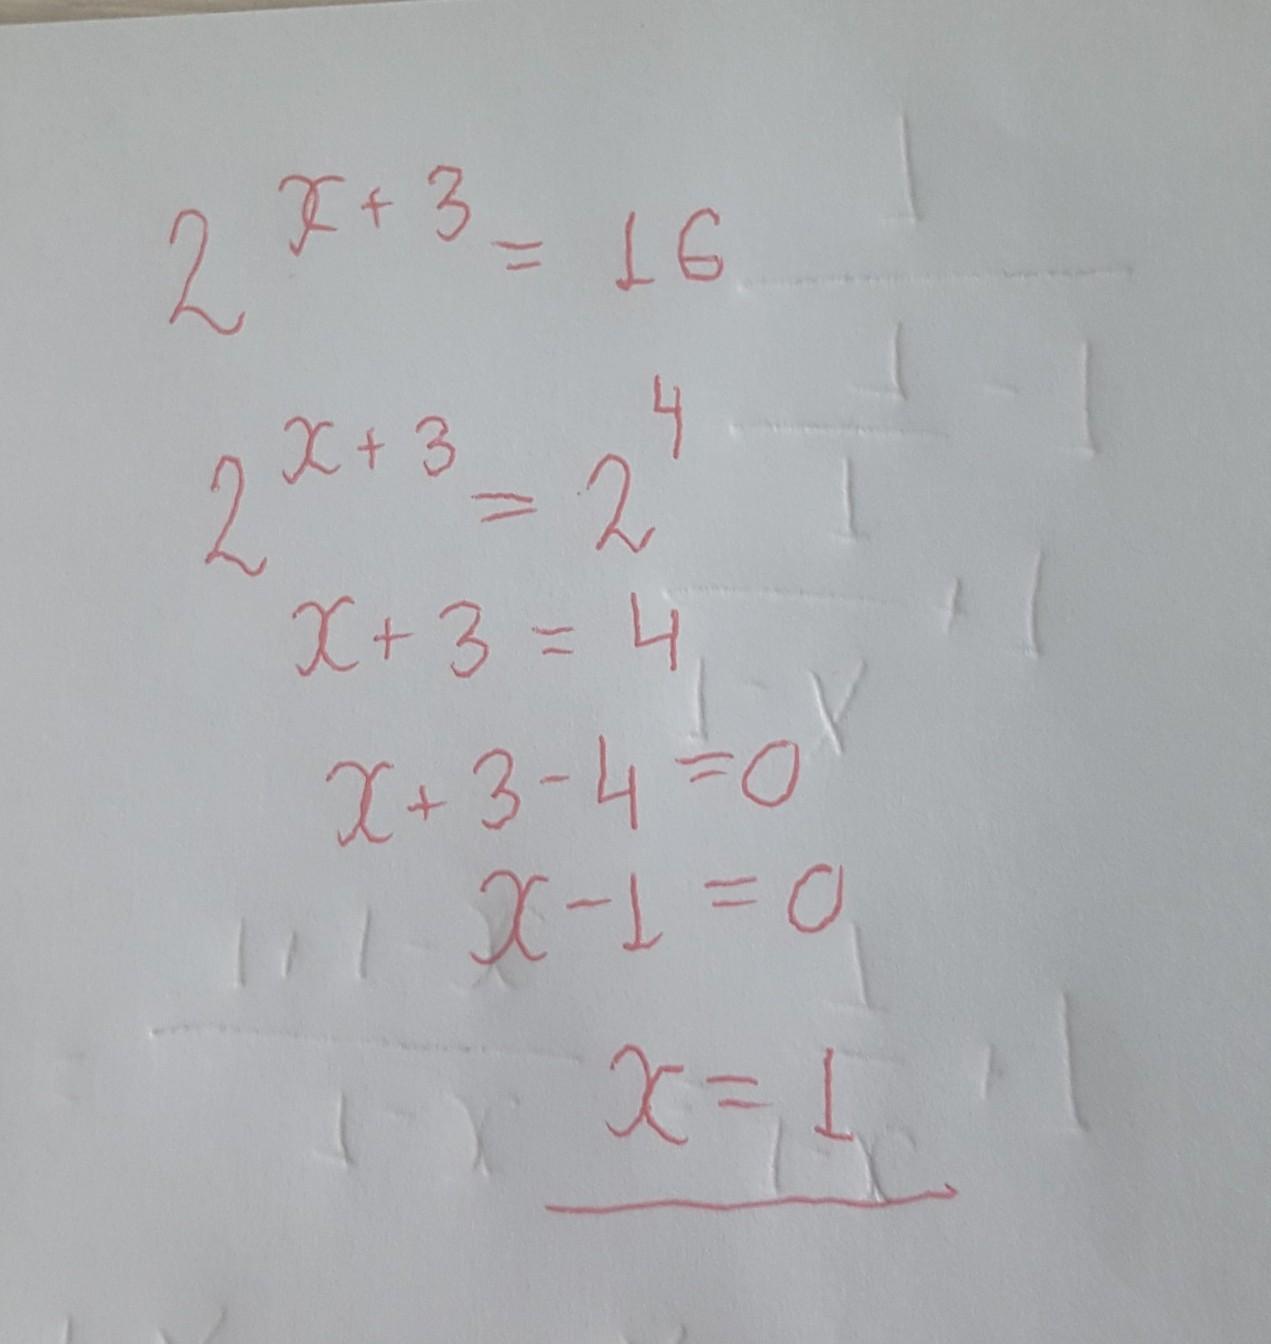 2^{x+3} = 16
2^{x+3} = 2^4
x + 3 = 4
x + 3 - 4 = 0
x - 1 = 0
x = 1